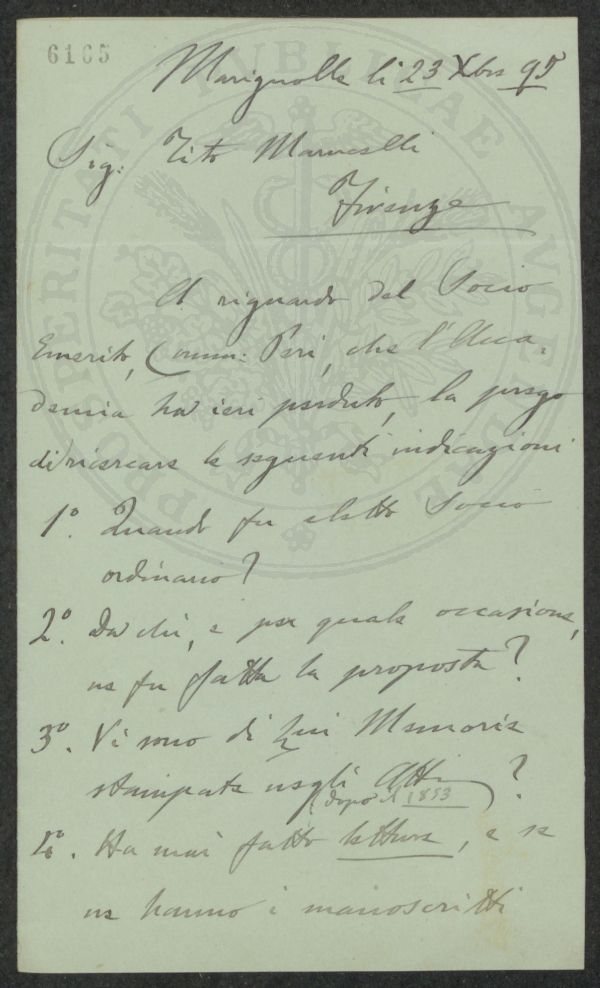 6165
PROSPERITATI PVBLICAE AVGENDAE
Marignolle li 23 Xbre 95
Sig: Tito Marucelli
Firenze
A riguardo del Socio
Emerito, Comm: Peri, che l'Acca-
demia ha ieri perduto, la prego
di ricercare le seguenti indicazioni
1º. Quando fu eletto Socio
ordinario?
2º. Da chi, e per quale occasione,
ne fu fatta la proposta?
3º. Vi sono di Lui Memorie
stampate negli Atti ?
(dopo il 1853)
4º. Ha mai fatto letture, e se
ne hanno i manoscritti